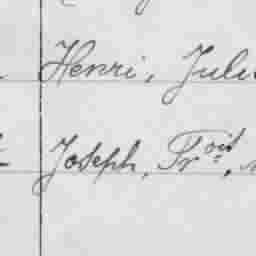 Henri, Juli
Joseph, Fr^çois,